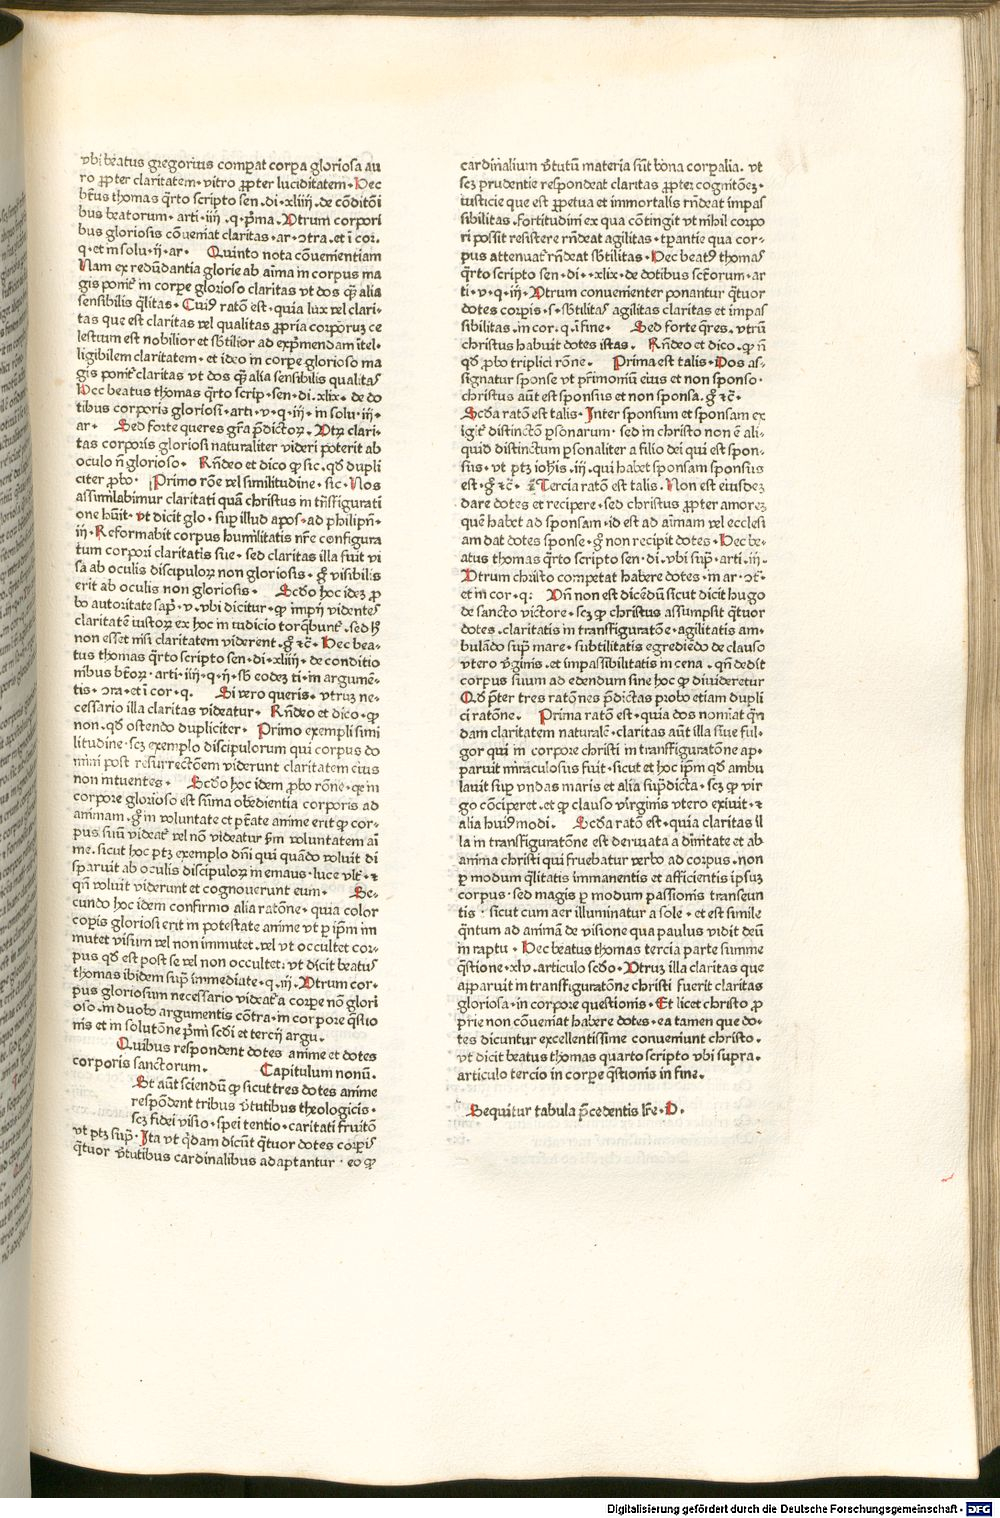 vbi beatus gregorius comꝑat corꝑa gloriosa au
ro ꝓpter claritatem · vitro ꝓpter luciditatem · Hec
bt̄us thomas q̄rto scripto sen · di · xliiij · de cōditōi
bus beatorum · arti · iiij · q · p̄ma · Vtrum corpori
bus gloriosis cōueniat claritas · ar · ↄtra · et ī cor ·
q · et in solu · ij · ar · Quinto nota cōuenientiam
Nam ex redūdantia glorie ab aīma in corpus ma
gis ponit᷑ in corꝑe glorioso claritas vt dos q̄ꝫ alia
sensibilis q̄litas · Cuiꝰ ratōn est · quia lux vel clari⸗
tas que est claritas vel qualitas ꝓpria corporuꝫ ce
lestium est nobilior et sb̄tilior ad exp̄mendam ītel⸗
ligibilem claritatem · et ideo in corꝑe glorioso ma
gis ponit᷑ claritas vt dos q̄ꝫ alia sensibilis qualitaſ
Hec beatus thomas q̄rto scrip · sen · di · xlix · de do
tibus corporis gloriosi · arti · v · q · iij · in solu · iij ·
ar · Sed forte queres gr̄a p̄dictoꝝ · Vtꝝ clari⸗
tas corporis gloriosi naturaliter videri poterit ab
oculo n̄ glorioso · Rn̄deo et dico ꝙ sic · qd̄ dupli
citer ꝓbo · Primo rōne vel similitudine · sic · Nos
assimilabimur claritati quā christus in trn̄sfigurati
one hūit · vt dicit glo · suꝑ illud apos · ad philipn̄ ·
iij · Reformabit corpus humilitatis nr̄e configura
tum corpori claritatis sue · sed claritas illa fuit vi
sa ab oculis discipuloꝝ non gloriosis · g̊ visibilis
erit ab oculis non gloriosis · Scd̄o hoc ideꝫ ꝓ
bo autoritate sap̄ · v · vbi dicitur · ꝙ impij videnteſ
claritatē iustoꝝ ex hoc in iudicio torq̄bunt᷑ · sed h̄
non esset nisi claritatem viderent · g̊ ⁊c̄ · Hec bea⸗
tus thomas q̄rto scripto sen · di · xliiij · de conditio
nibus bt̄oꝝ · arti · iiij · q · ij · sb̄ eodeꝫ ti · in argumē⸗
tis · ↄra · et ī cor · q · Si vero queris · vtruꝫ ne⸗
cessario illa claritas videatur · Rn̄deo et dico · ꝙ
non · qd̄ ostendo dupliciter · Primo exempli simi
litudine · scꝫ exemplo discipulorum qui corpus do
mini post resurrectōem viderunt claritatem eius
non intuentes · Scd̄o hoc idem ꝓbo rōne · qꝛ in
corpore glorioso est sūma obedientia corporis ad
animam · g̊ in voluntate et p̄tate anime erit ꝙ cor⸗
pus suū videat᷑ vel nō videatur ẜm voluntatem aī
me · sicut hoc ptꝫ exemplo dn̄i qui quādo voluit di
sparuit ab oculis discipuloꝝ in emaus · luce vlt̄ · ⁊
qn̄ voluit viderunt et cognouerunt eum · Se⸗
cundo hoc idem confirmo alia ratōne · quia color
coꝑis gloriosi erit in potestate anime vt ꝑ ip̄m im
mutet visum vel non immutet · vel vt occultet cor⸗
pus qd̄ est post se vel non occultet · vt dicit beatuſ
thomas ibidem suꝑ immediate · q · iij · Vtrum cor⸗
pus gloriosum necessario videat᷑ a corpe nō glori
oso · in duobꝰ argumentis cōtra · in corpore q̄stio
nis et in solutōne p̄mi scd̄i et tercij argu ·
Quibus respondent dotes anime et dotes
corporis sanctorum · Capitulum nonū ·
Et aūt sciendū ꝙ sicut tres dotes anime
respōdent tribus v̄tutibus theologicis ·
scꝫ fidei visio · spei tentio · caritati fruitō
vt ptꝫ suꝑ · Ita vt q̄dam dicūt q̄tuor dotes coꝑiſ
q̄tuor v̄tutibus cardinalibus adaptantur · eo ꝙ
cardinalium v̄tutū materia sūt bona corꝑalia · vt
scꝫ prudentie respondeat claritas ꝓpter cognitōeꝫ ·
iusticie que est ꝑpetua et immortalis rn̄deat impaſ
sibilitas · fortitudini ex qua cōtingit vt nihil corpo
ri possit resistere rn̄deat agilitas · tꝑantie qua cor⸗
pus attenuat᷑ rn̄deat sb̄tilitas · Hec beatꝰ thomaſ
q̄rto scripto sen · di · xlix · de dotibus sct̄orum · ar
ti · v · q · iij · Vtrum conuenienter ponantur q̄tuor
dotes corꝑis · s · sb̄tilitaſ agilitas claritas et impaſ
sibilitas · in cor · q · ī fine · Sed forte q̄res · vtrū
christus habuit dotes istas · Rn̄deo et dico · ꝙ n̄
qd̄ ꝓbo triplici rōne · Prima est talis · Dos as⸗
signatur sponse vt p̄rimoniū eius et non sponso ·
christus aūt est sponsus et non sponsa · g̊ ⁊c̄ ·
Scd̄a ratōn est talis · Inter sponsum et sponsam ex
igit᷑ distinctō ꝑsonarum · sed in christo non ē ali⸗
quid distinctum ꝑsonaliter a filio dei qui est spon⸗
sus · vt ptꝫ ioh̄is · iij · qui habet sponsam sponsus
est · g̊ ⁊c̄ · Tercia ratōn est talis · Non est eiusdeꝫ
dare dotes et recipere · sed christus ꝓpter amoreꝫ
quē habet ad sponsam · id est ad aīmam vel ecclesi
am dat dotes sponse · g̊ non recipit dotes · Hec be⸗
atus thomas q̄rto scripto sen · di · vbi suꝑ · arti · iij ·
Vtrum christo competat habere dotes · in ar · ↄt᷑ ·
et in cor · q · Vn̄ non est dicēdū sicut dicit hugo
de sancto victore · scꝫ ꝙ christus assumpsit q̄tuor
dotes · claritatis in transfiguratōe · agilitatis am⸗
bulādo suꝑ mare · subtilitatis egrediēdo de clauso
vtero v̄ginis · et impassibilitatis in cena · qn̄ dedit
corpus suum ad edendum sine hoc ꝙ diuideretur
Qd̄ p̄ter tres ratōnes p̄dictas probo etiam dupli
ci ratōne · Prima ratōn est · quia dos nominat q̄n
dam claritatem naturalē · claritas aūt illa siue ful⸗
gor qui in corpore christi in transfiguratōne ap⸗
paruit miraculosus fuit · sicut et hoc ip̄m qd̄ ambu
lauit suꝑ vndas maris et alia sup̄dicta · scꝫ ꝙ vir
go cōciperet · et ꝙ clauso virginis vtero exiuit · ⁊
alia huiꝰmodi · Scd̄a ratōn est · quia claritas il
la in transfiguratōne est deriuata a diuinitate et ab
anima christi qui fruebatur verbo ad corpus · non
ꝑ modum q̄litatis immanentis et afficientis ipsuꝫ
corpus · sed magis ꝑ modum passionis transeun
tis · sicut cum aer illuminatur a sole · et est simile
q̄ntum ad animā de visione qua paulus vidit deū
in raptu · Hec beatus thomas tercia parte summe
q̄stione · xlv · articulo scd̄o · Vtruꝫ illa claritas que
apparuit in transfiguratōne christi fuerit claritas
gloriosa · in corpore questionis · Et licet christo ꝓ
prie non cōueniat habere dotes · ea tamen que do⸗
tes dicuntur excellentissime conueniunt christo ·
vt dicit beatus thomas quarto scripto vbi supra ·
articulo tercio in corꝑe q̄stionis in fine ·
Sequitur tabula p̄cedentis lr̄e · D ·
Digitalisierung gefördert durch die Deutsche Forschungsgemeinschaft · DFG